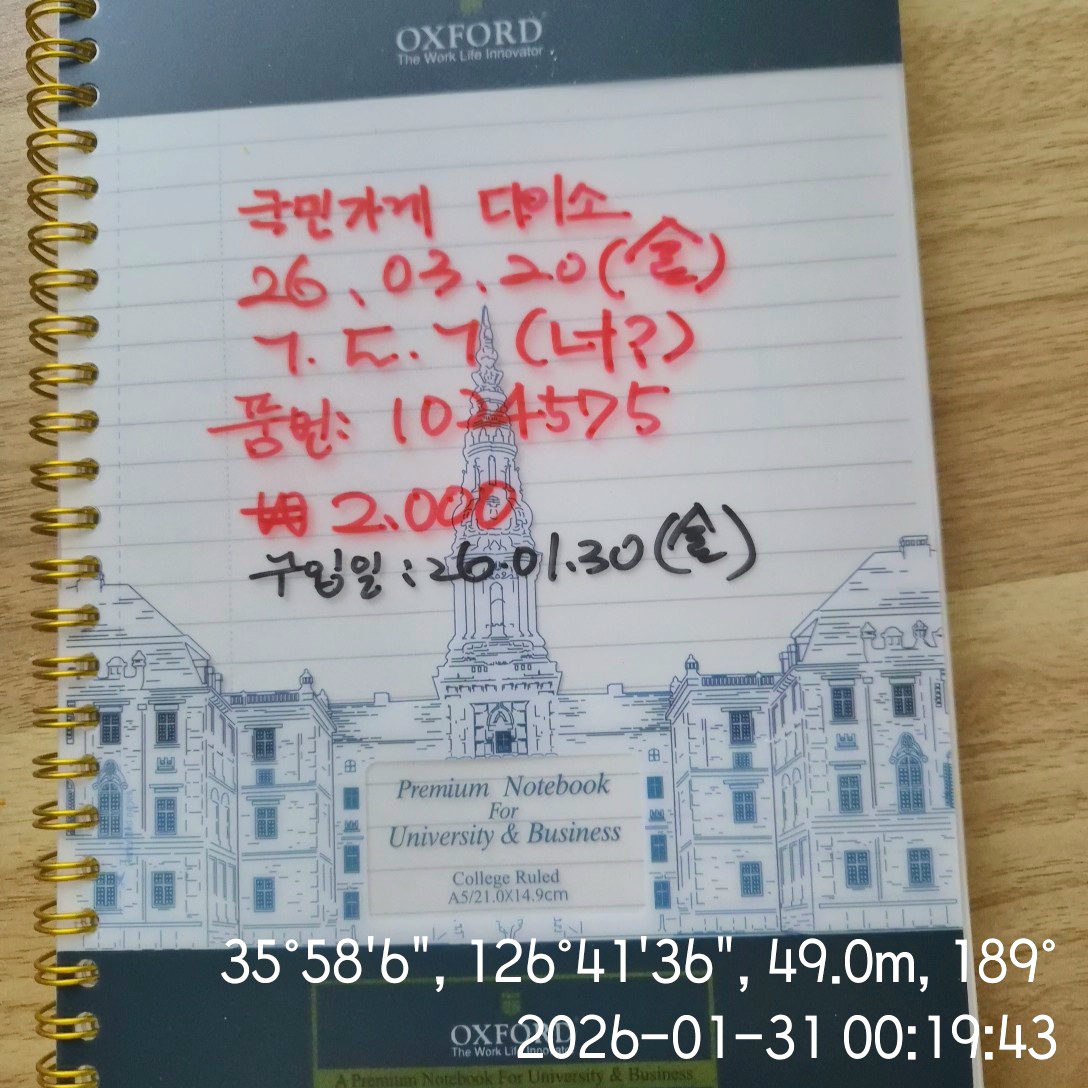 OXFORD
The Work Life Innovator
국민가게 다이소
26.03.20(金)
ㄱ.ㄷ.ㄱ (너?)
품번: 1024575
2.000
구입일:26.01.30(金)
Premium Notebook
For
University & Business
College Ruled
A5/21.0X14.9cm
35°58'6", 126°41'36", 49.0m, 189°
OXFORD
2026-01-31 00:19:43
The Work Life Innovator
A Premium Notebook For University & Business